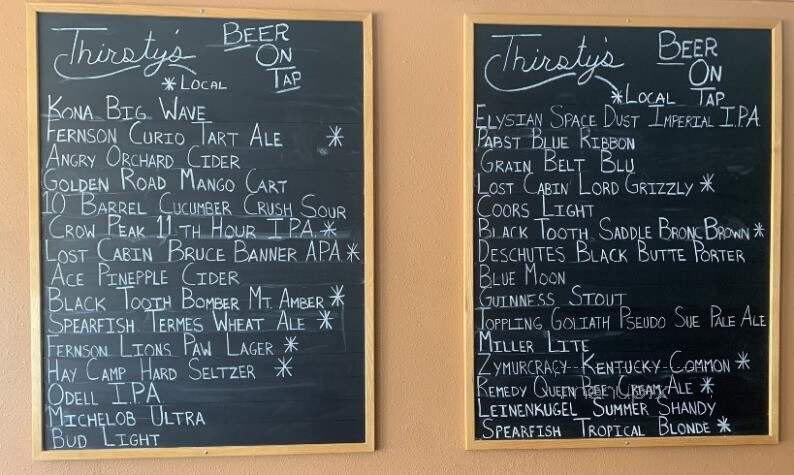 Thirsty's
BEER
ON
TAP
*LOCAL
KONA BIG WAVE
FERNSON CURIO TART ALE *
ANGRY ORCHARD CIDER
GOLDEN ROAD MANGO CART
10 BARREL CUCUMBER CRUSH SOUR
CROW PEAK 11TH HOUR I.P.A. *
LOST CABIN BRUCE BANNER APA *
ACE PINEPPLE CIDER
BLACK TOOTH BOMBER MT. AMBER *
SPEARFISH TERMES WHEAT ALE *
FERNSON LIONS PAW LAGER *
HAY CAMP HARD SELTZER *
ODELL I.P.A
MICHELOB ULTRA
BUD LIGHT
Thirsty's
BEER
ON
TAP
*LOCAL
ELYSIAN SPACE DUST IMPERIAL I.P.A.
PABST BLUE RIBBON
GRAIN BELT BLU
LOST CABIN LORD GRIZZLY *
COORS LIGHT
BLACK TOOTH SADDLE BRONC BROWN *
DESCHUTES BLACK BUTTE PORTER
BLUE MOON
GUINNESS STOUT
TOPPLING GOLIATH PSEUDO SUE PALE ALE
MILLER LITE
ZYMURCRACY KENTUCKY COMMON *
REMEDY QUEEN BEE CREAM ALE *
LEINENKUGEL SUMMER SHANDY
SPEARFISH TROPICAL BLONDE *